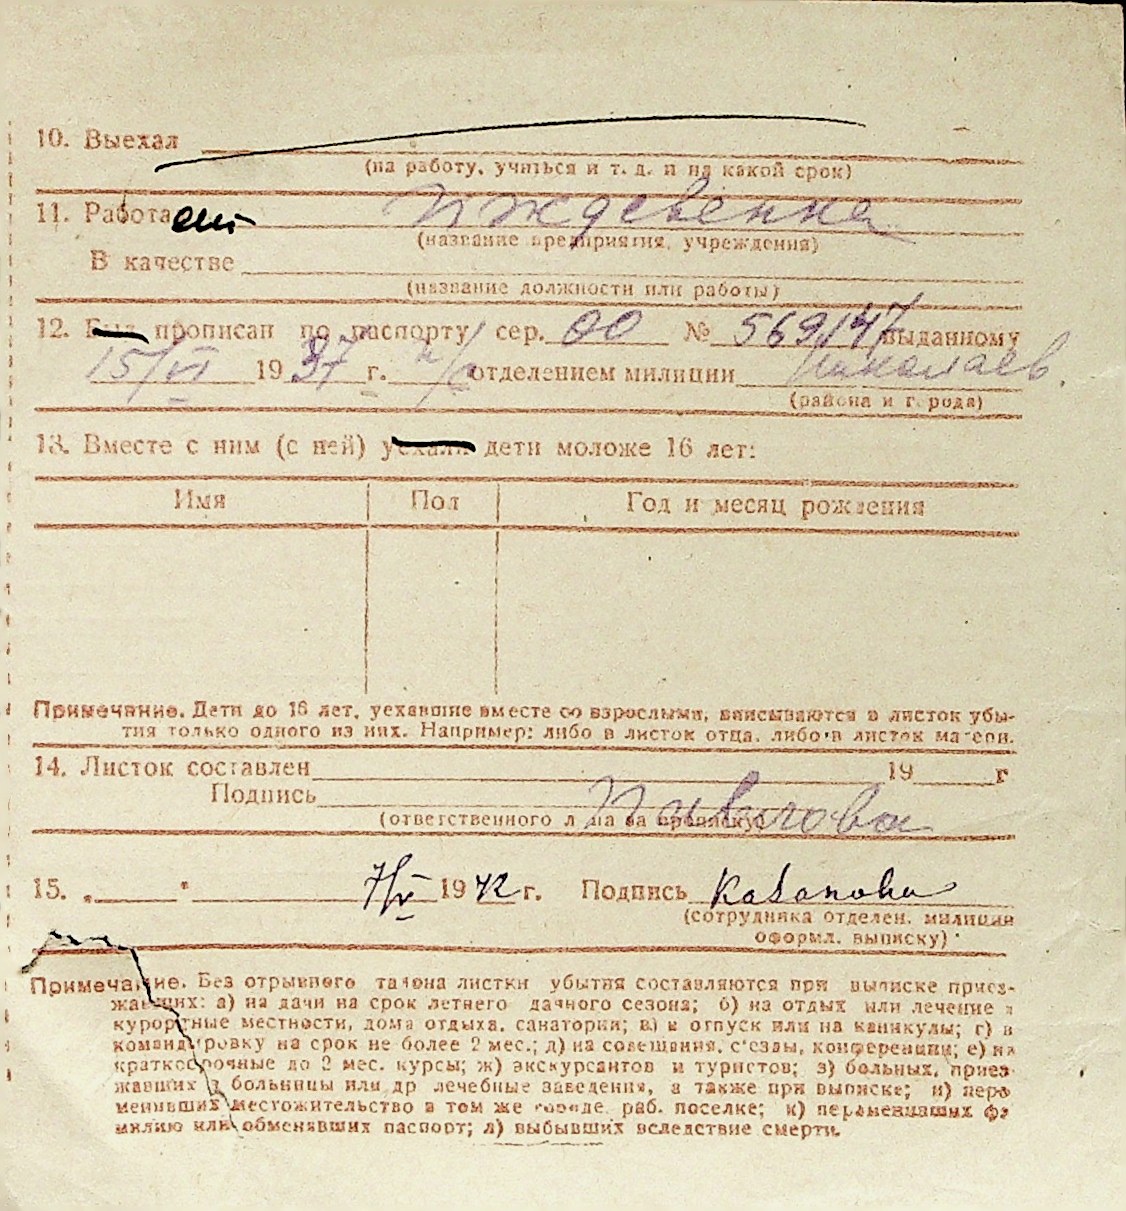 10. Выехал
(на работу, учиться и т. д. и на какой срок)
11. Работает Иждевенка
(название предприятия, учреждения)
В качестве
(название должности или работы)
12. Был прописан по паспорту сер. 00 № 569147 выданному
15/VI 1937 г. отделением милиции Николаев.
(района и города)
13. Вместе с ним (с ней) уехали дети моложе 16 лет:
Имя Пол Год и месяц рождения
Примечание. Дети до 16 лет, уехавшие вместе со взрослыми, вписываются в листок убы-
тия только одного из них. Например: либо в листок отца, либо в листок матери.
14. Листок составлен 19 г
Подпись Павлова
(ответственного лица за прописку)
15. „ " 7/V 1942 г. Подпись Казакова
(сотрудника отделен. милиции
оформл. выписку)
Примечание. Без отрывного талона листки убытия составляются при выписке приез-
жавших: а) на дачи на срок летнего дачного сезона; б) на отдых или лечение в
курортные местности, дома отдыха, санатории; в) в отпуск или на каникулы; г) в
командировку на срок не более 2 мес.; д) на совещания, с'езды, конференции; е) на
краткосрочные до 2 мес. курсы; ж) экскурсантов и туристов; з) больных, приез-
жавших в больницы или др лечебные заведения, а также при выписке; и) пере
менивших местожительство в том же городе, раб. поселке; к) переменивших фа
милию или обменявших паспорт; л) выбывших вследствие смерти.